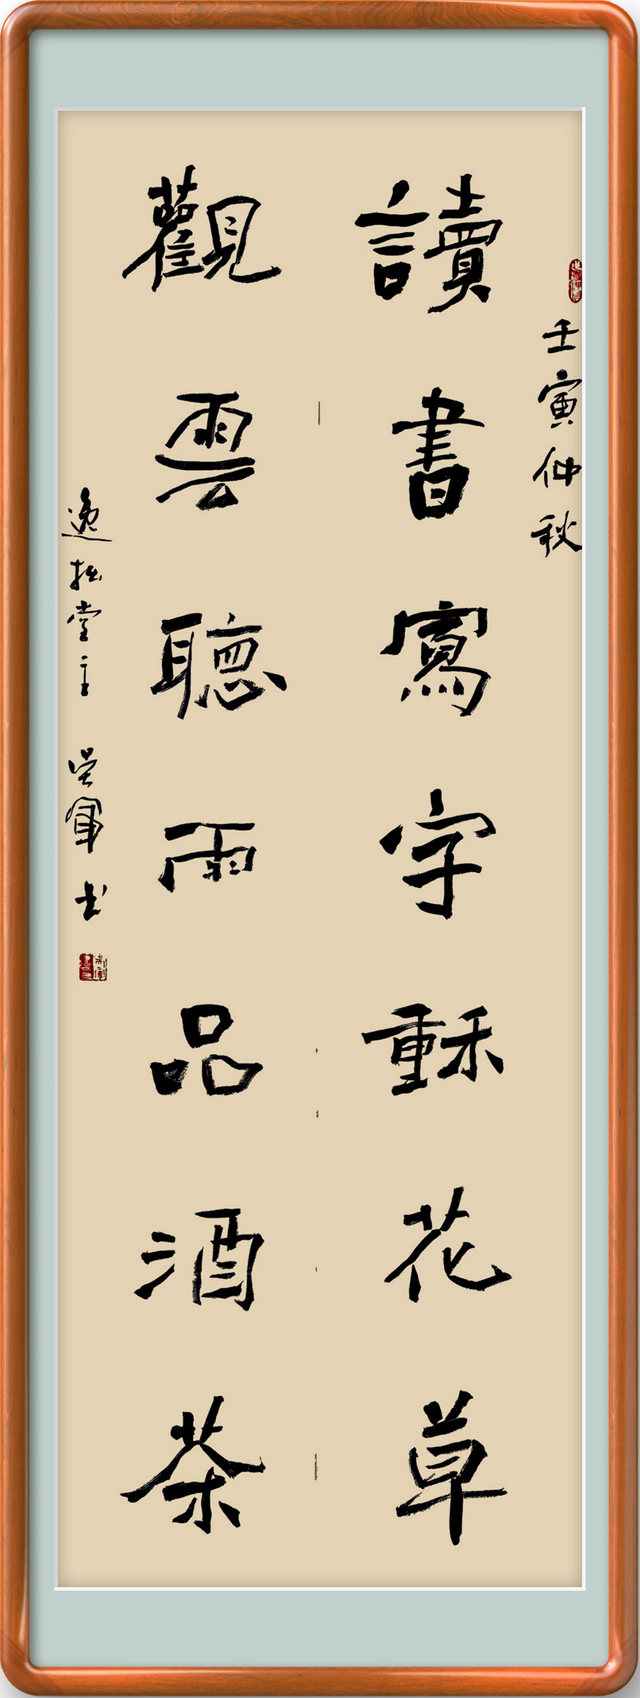 壬寅仲秋
讀書寫字穌花草
觀雲聽雨品酒茶
逸拙堂主 吳軍书